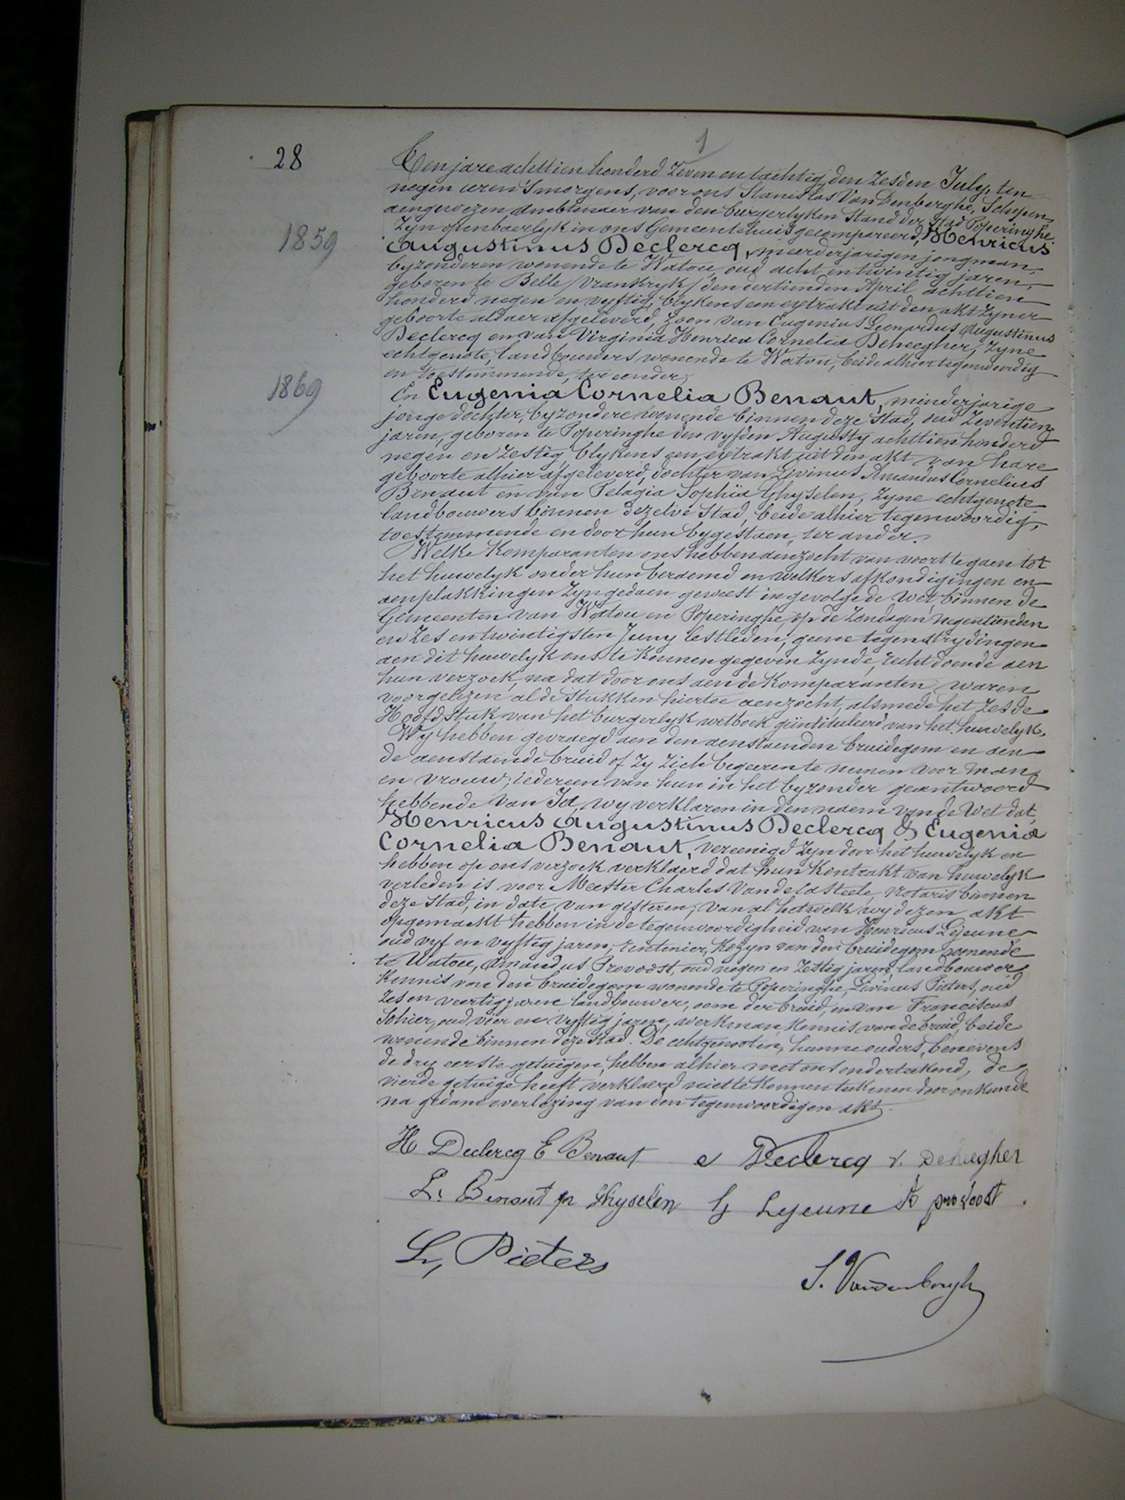 1
28
Ten jare achttien honderd zeven en tachtig, den zesden July, ten
negen uren 's morgens, voor ons Stanislas Van Denberghe, Schepen,
aengewezen Ambtenaer van den burgerlyken Stand der Stad Poperinghe,
zyn openbaerlyk in ons Gemeentehuis gecompareerd, Henricus
1859
Augustinus Declercq, meerderjarigen jongman,
byzonderen wonende te Watou, oud acht en twintig jaren,
geboren te Belle /Vrankryk/ den dertienden April achttien
honderd negen en vyftig, blykens een extrakt uit den akt zyner
geboorte aldaer afgeleverd, zoon van Eugenius Leonardus Augustinus
Declercq en van Virginia Henrica Cornelia Deheegher, zyne
echtgenote, landbouwers wonende te Watou, beide alhier tegenwoordig
en toestemmende, ter eender;
1869
En Eugenia Cornelia Benaut, minderjarige
jonge dochter, byzondere wonende binnen deze Stad, oud zeventien
jaren, geboren te Poperinghe den vyfden Augusty achttien honderd
negen en zestig, blykens een extrakt uit den akt van hare
geboorte alhier afgeleverd, dochter van Livinus Amandus Cornelius
Benaut en van Pelagia Sophia Ghyselen, zyne echtgenote
landbouwers binnen dezelve Stad, beide alhier tegenwoordig,
toestemmende en door hun bygestaen, ter ander.
Welke Komparanten ons hebben aenzocht van voort te gaen tot
het huwelyk onder hun beraemd en welkers afkondigingen en
aenplakkingen zyn gedaen geweest in gevolge de Wet binnen de
Gemeenten van Watou en Poperinghe op de Zondagen negentienden
en zes en twintigsten Juny lestleden; geene tegenstrydingen
aen dit huwelyk ons te kennen gegeven zynde, recht doende aen
hun verzoek, na dat door ons aen de Komparanten waren
voorgelezen al de Stukken hiertoe aenzocht, alsmede het zesde
Hoofdstuk van het burgerlyk wetboek geintituleerd van het huwelyk.
Wy hebben gevraegd aen den aenstaenden bruidegom en aen
de aenstaende bruid of zy zich begeeren te nemen voor man
en vrouw; iedereen van hun in het byzonder geantwoord
hebbende van Ja, wy verklaren in den naem van de Wet dat
Henricus Augustinus Declercq & Eugenia
Cornelia Benaut, vereenigd zyn door het huwelyk en
hebben op ons verzoek verklaerd dat hun Kontrakt van huwelyk
verleden is voor Meester Charles Vandelasteele, notaris binnen
deze Stad, in date van gisteren; van al hetwelk wy dezen akt
opgemaekt hebben in de tegenwoordigheid van Henricus Lejeune
oud vyf en vyftig jaren, rentenier, Kozyn van den bruidegom wonende
te Watou, Amandus Provoost, oud negen en zestig jaren, landbouwer
Kennis van den bruidegom wonende te Poperinghe, Livinus Pieters, oud
zes en veertig jaren landbouwer, oom der bruid, en van Franciscus
Sohier, oud vier en vyftig jaren, werkman, Kennis van de bruid, beide
wonende binnen deze Stad. De echtgenooten, hunne ouders, benevens
de dry eerste getuigen, hebben alhier met ons onderteekend, de
vierde getuige heeft verklaerd niet te kennen teekenen door onkunde
na gedane overlezing van den tegenwoordigen akt.
H Declercq E Benaut e Declercq v. Deheegher
L. Benaut p Ghyselen H Lejeune provoost
Lv, Pieters
S. Vandenbergh